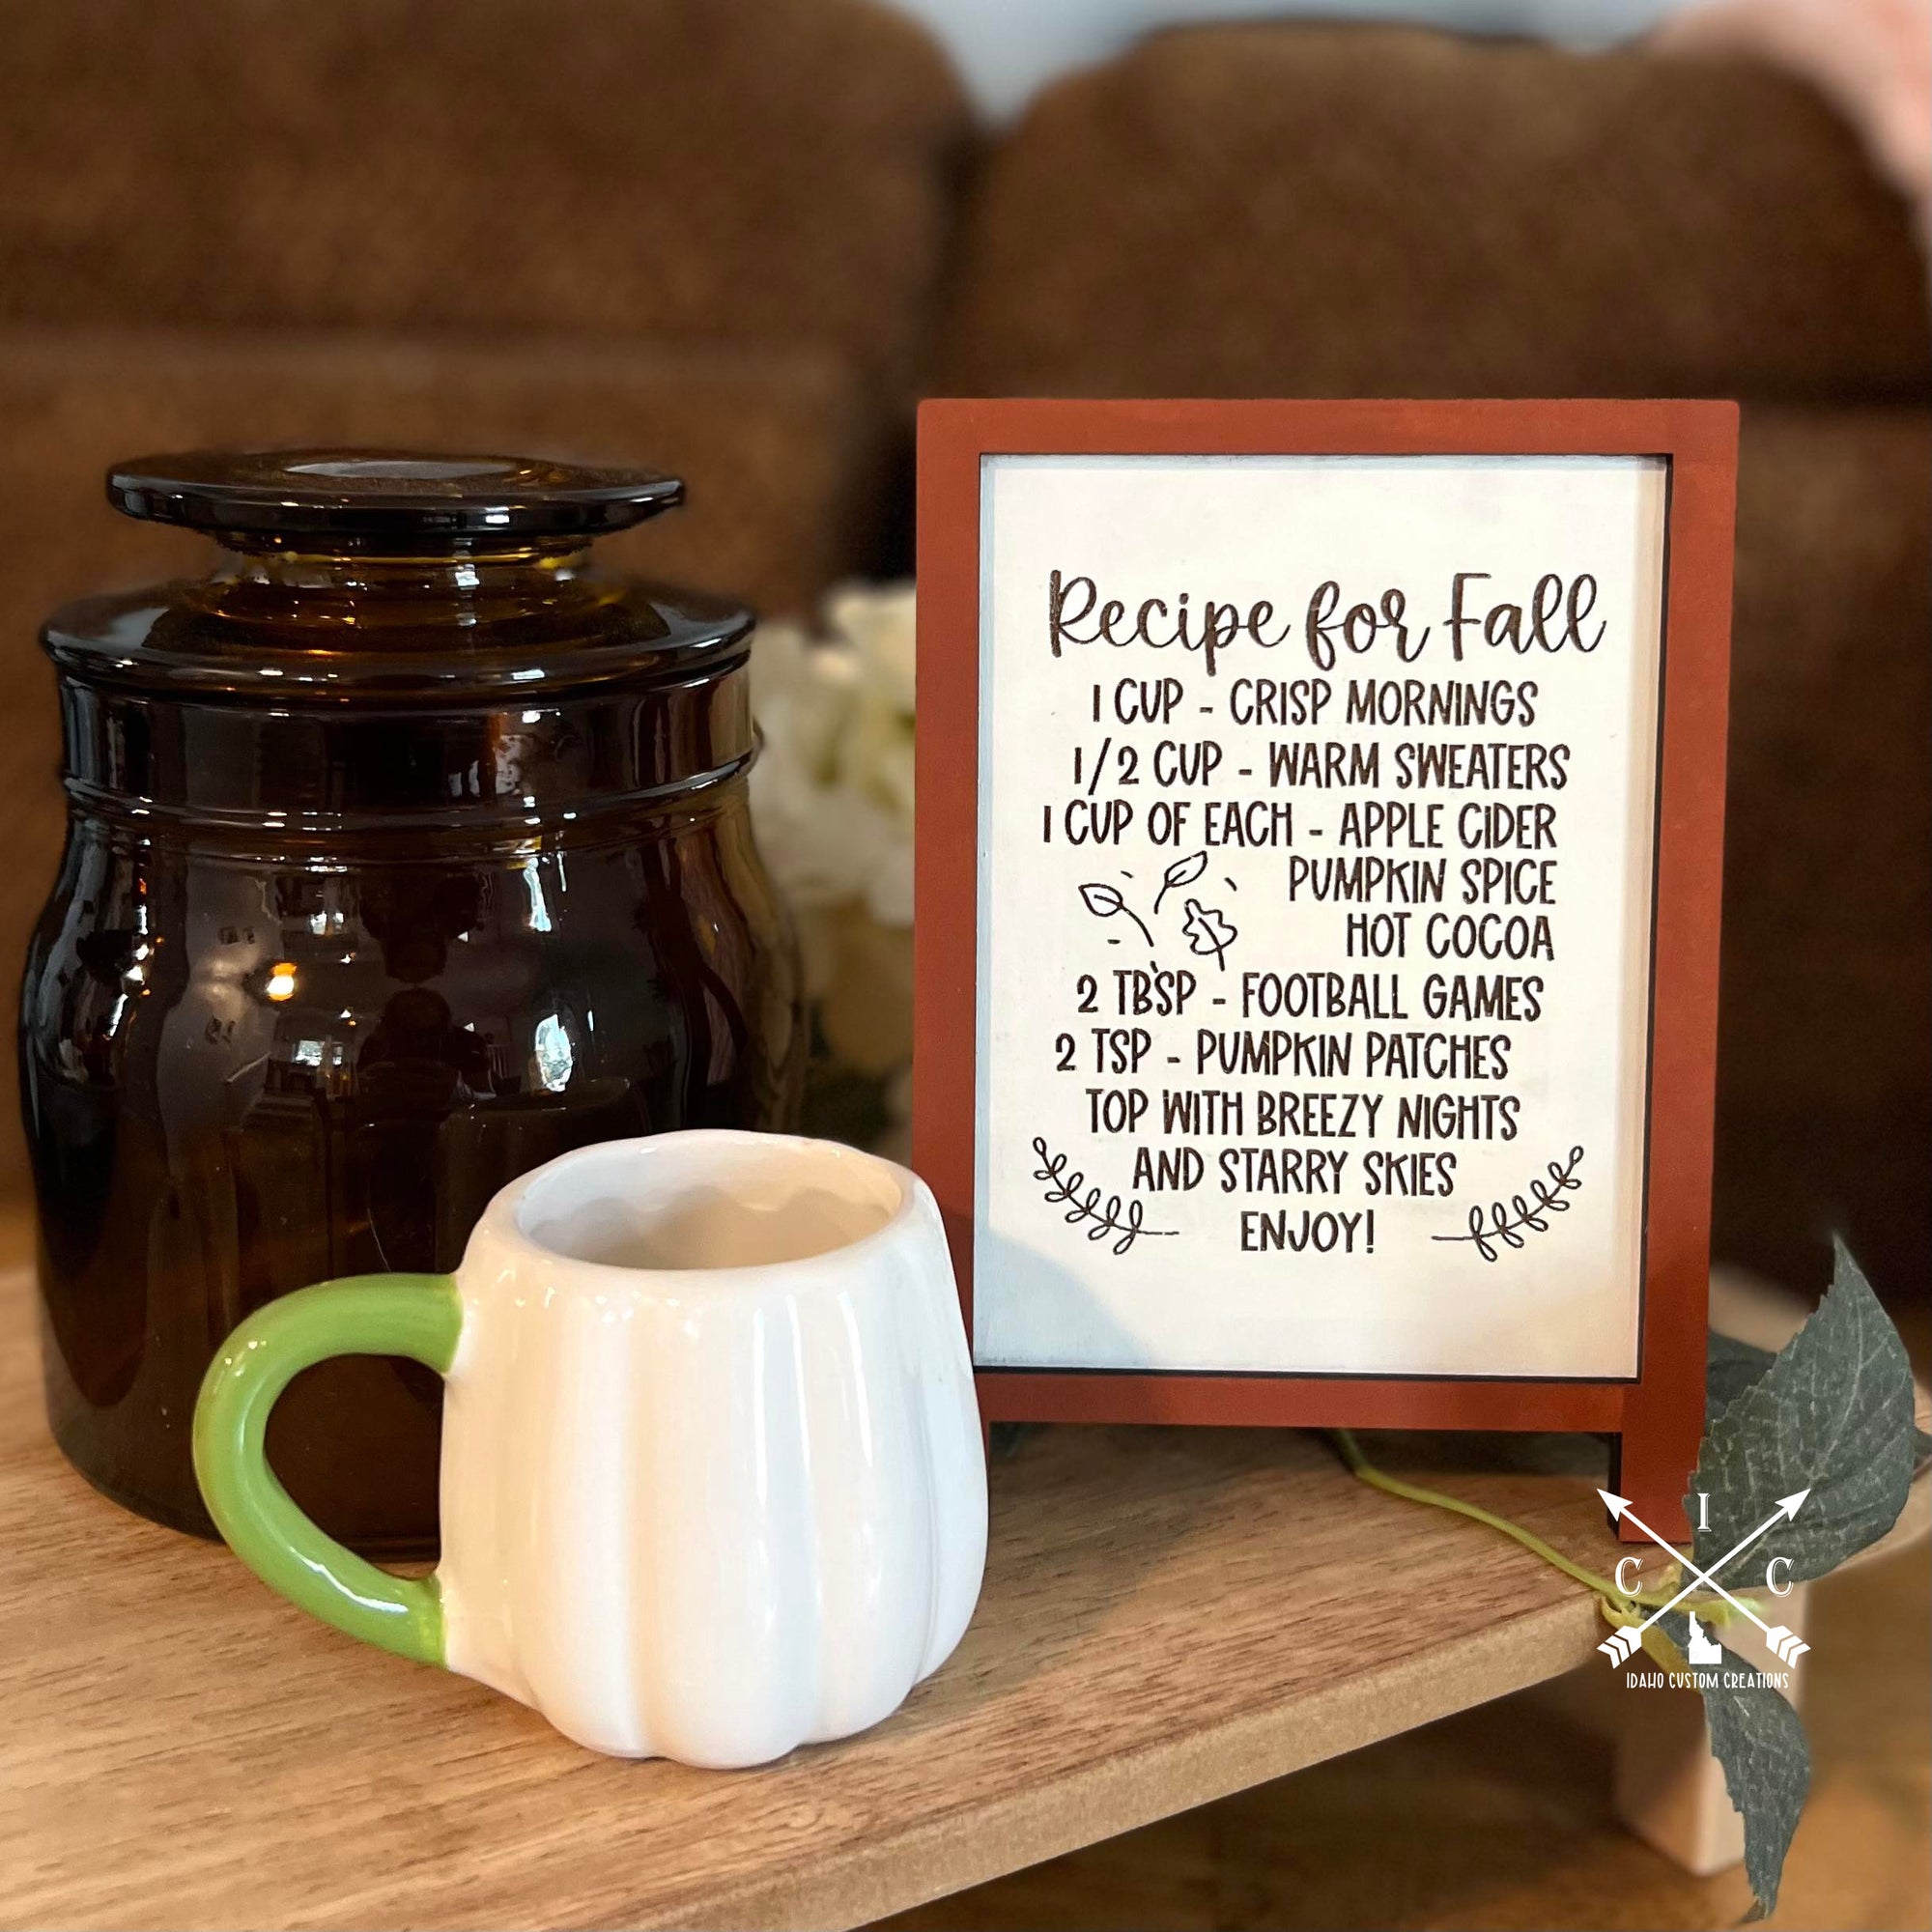 Recipe for Fall
1 CUP - CRISP MORNINGS
1/2 CUP - WARM SWEATERS
1 CUP OF EACH - APPLE CIDER
PUMPKIN SPICE
HOT COCOA
2 TBSP - FOOTBALL GAMES
2 TSP - PUMPKIN PATCHES
TOP WITH BREEZY NIGHTS
AND STARRY SKIES
ENJOY!
I
C C
IDAHO CUSTOM CREATIONS